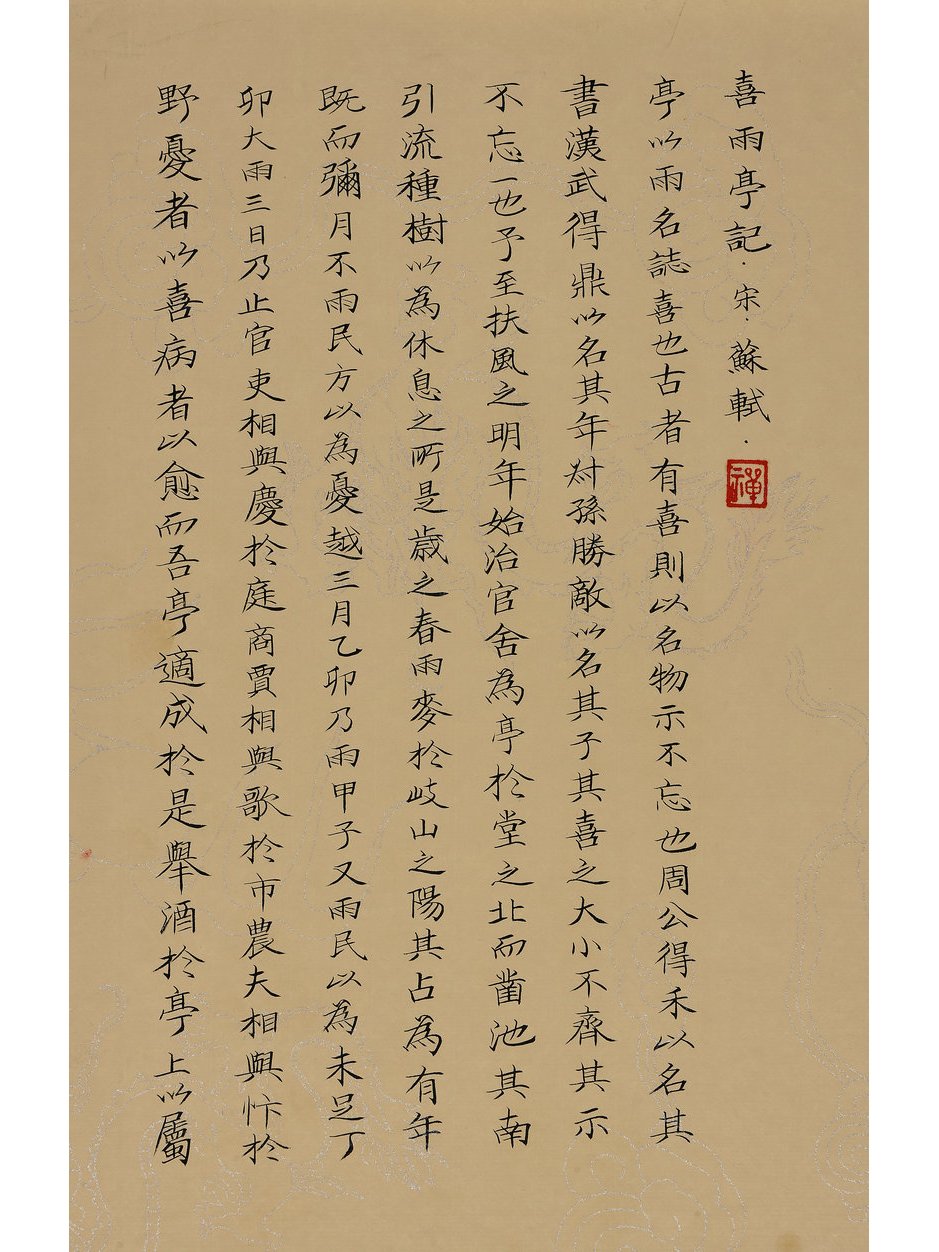 喜雨亭記·宋·蘇軾·禪
亭以雨名誌喜也古者有喜則以名物示不忘也周公得禾以名其
書漢武得鼎以名其年尌孫勝敵以名其子其喜之大小不齊其示
不忘一也予至扶風之明年始治官舍為亭於堂之北而鑿池其南
引流種樹以為休息之所是歲之春雨麥於岐山之陽其占為有年
既而彌月不雨民方以為憂越三月乙卯乃雨甲子又雨民以為未足丁
卯大雨三日乃止官吏相與慶於庭商賈相與歌於市農夫相與忭於
野憂者以喜病者以愈而吾亭適成於是舉酒於亭上以屬